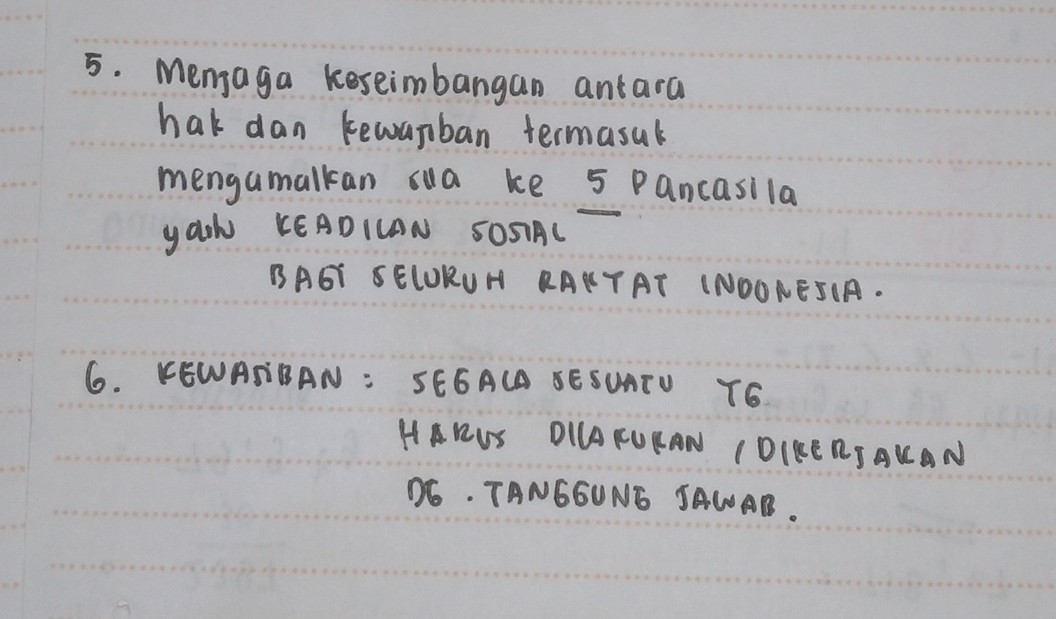 5. Menjaga keseimbangan antara
hak dan kewajiban termasuk
mengamalkan sila ke 5 Pancasila
yaitu KEADILAN SOSIAL
BAGI SELURUH RAKYAT INDONESIA.
6. KEWAJIBAN : SEGALA SESUATU YG
HARUS DILAKUKAN / DIKERJAKAN
DG. TANGGUNG JAWAB.